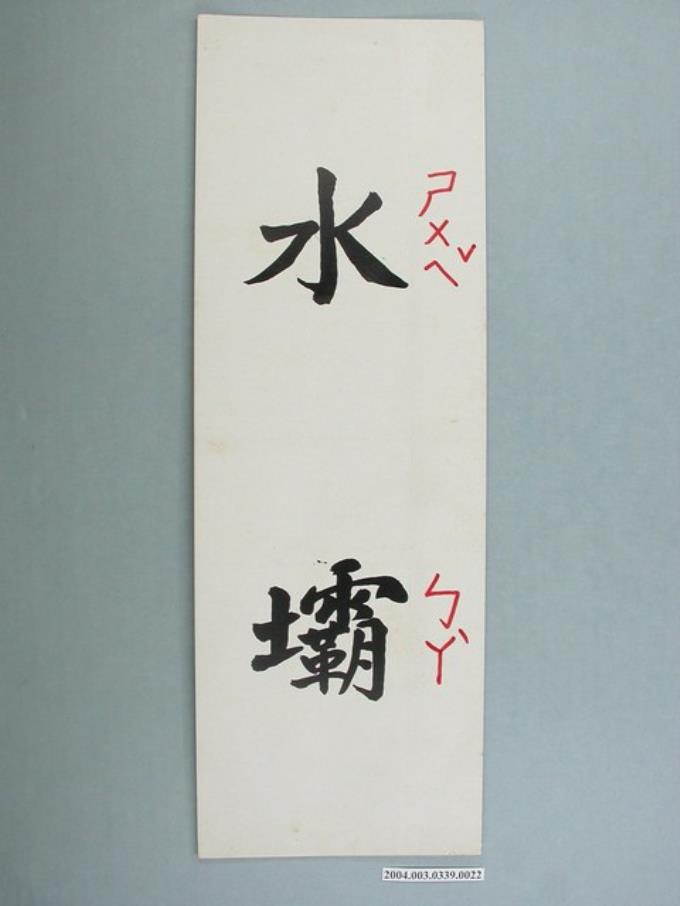 水 ㄕㄨㄟˇ
壩 ㄅㄚˋ
2004.003.0339.0022